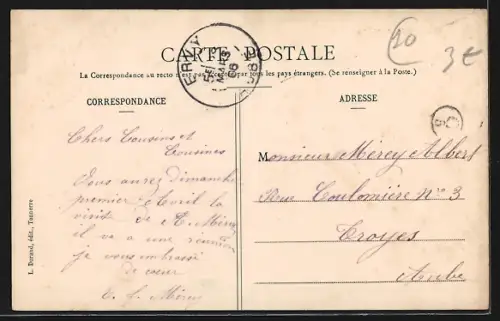 CARTE POSTALE
La Correspondance au recto n'est pas acceptée par tous les pays étrangers. (Se renseigner à la Poste.)
CORRESPONDANCE
ADRESSE
ERVY
MARS
06
20
3€
Chers Cousins et
Cousines
Vous aurez dimanche
premier Avril la
visit de A. Mérey
il va a une réunion
je vous embrasse
de coeur
E. f. Mérey
Monsieur Mérey Albert
Rue Coulomière N° 3
Troyes
Aube
L. Durand, édit., Tonnerre